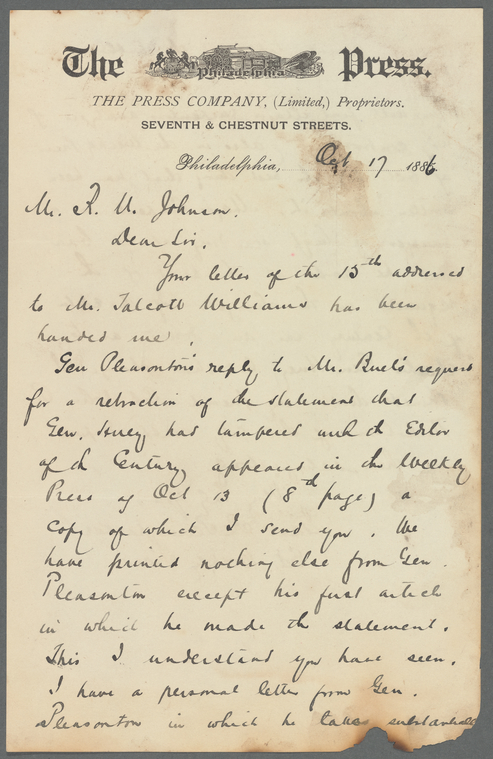 The Philadelphia Press.
THE PRESS COMPANY, (Limited,) Proprietors.
SEVENTH & CHESTNUT STREETS.
Philadelphia, Oct. 17 1886.
Mr. R. U. Johnson.
Dear Sir.
Your letter of the 15th addressed
to Mr. Talcott Williams has been
handed me.
Gen Pleasonton's reply to Mr. Buel's request
for a retraction of the statement that
Gen. Huey had tampered with th Editor
of th Century appeared in th Weekly
Press of Oct 13 (8th page) a
copy of which I send you. We
have printed nothing else from Gen.
Pleasonton except his first article
in which he made th statement.
This I understand you have seen.
I have a personal letter from Gen.
Pleasonton in which he takes